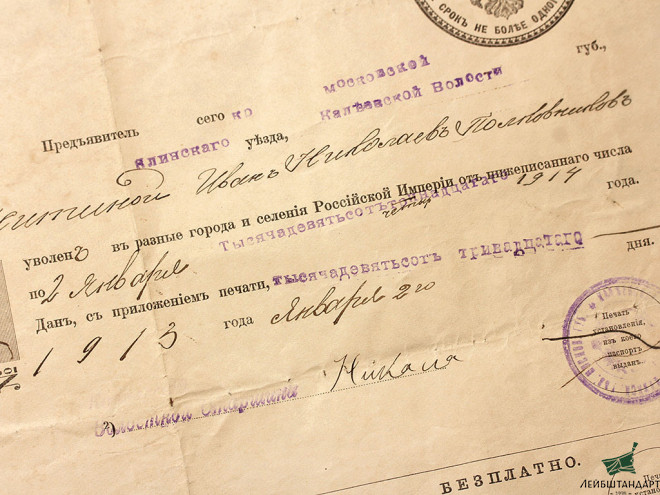 СРОКЪ НЕ БОЛѢЕ ОДНО
Предъявитель сего московской губ.,
Клинскаго уѣзда, Калѣевской Волости
Иванъ Николаевъ Полковниковъ
уволенъ въ разные города и селенія Россійской Имперіи отъ нижеписаннаго числа
по 2 января Тысячадевятьсотъ четыр 1914 года.
Данъ, съ приложеніемъ печати, тысячадевятьсотъ тринадцатаго дня.
1913 года января 2го
Печать
установленія,
изъ коего
паспортъ
выданъ.
Волостной Старшина
БЕЗПЛАТНО.
ЛЕЙБШТАНДАРТ